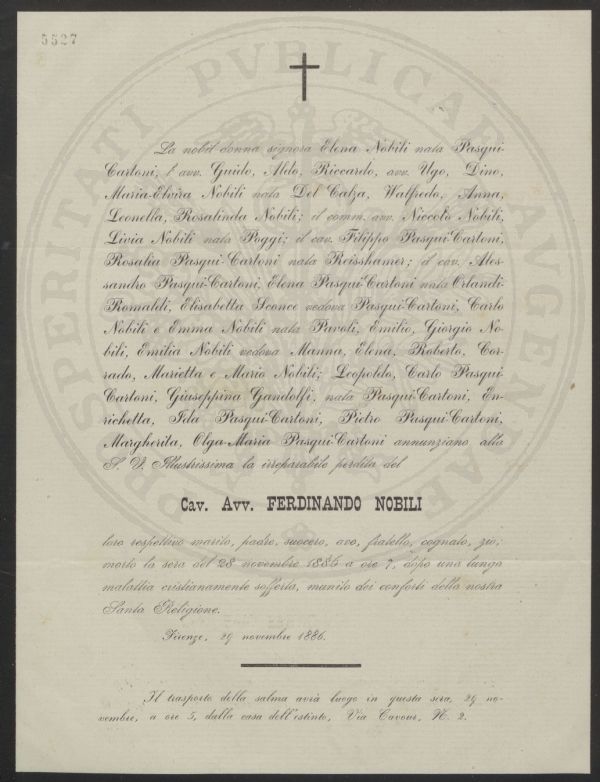 5527
La nobil donna signora Elena Nobili nata Pasqui-
Cartoni, l'avv. Guido, Aldo, Riccardo, avv. Ugo, Dino,
Maria-Elvira Nobili nata Del Calza, Walfredo, Anna,
Leonella, Rosalinda Nobili; il comm. avv. Niccolò Nobili,
Livia Nobili nata Poggi; il cav. Filippo Pasqui-Cartoni,
Rosalia Pasqui-Cartoni nata Reisshamer; il cav. Ales-
sandro Pasqui-Cartoni, Elena Pasqui-Cartoni nata Orlandi-
Romaldi, Elisabetta Sconce vedova Pasqui-Cartoni, Carlo
Nobili e Emma Nobili nata Pavoli, Emilio, Giorgio No-
bili, Emilia Nobili vedova Manna, Elena, Roberto, Cor-
rado, Marietta e Mario Nobili; Leopoldo, Carlo Pasqui-
Cartoni, Giuseppina Gandolfi, nata Pasqui-Cartoni, En-
richetta, Ida Pasqui-Cartoni, Pietro Pasqui-Cartoni,
Margherita, Olga-Maria Pasqui-Cartoni annunziano alla
S. V. Illustrissima la irreparabile perdita del
Cav. Avv. FERDINANDO NOBILI
loro respettivo marito, padre, suocero, avo, fratello, cognato, zio;
morto la sera del 28 novembre 1886 a ore 7, dopo una lunga
malattia cristianamente sofferta, munito dei conforti della nostra
Santa Religione.
Firenze, 29 novembre 1886.
Il trasporto della salma avrà luogo in questa sera, 29 no-
vembre, a ore 5, dalla casa dell'estinto, Via Cavour, N. 2.
PROSPERITATI PVBLICAE AVGENDAE